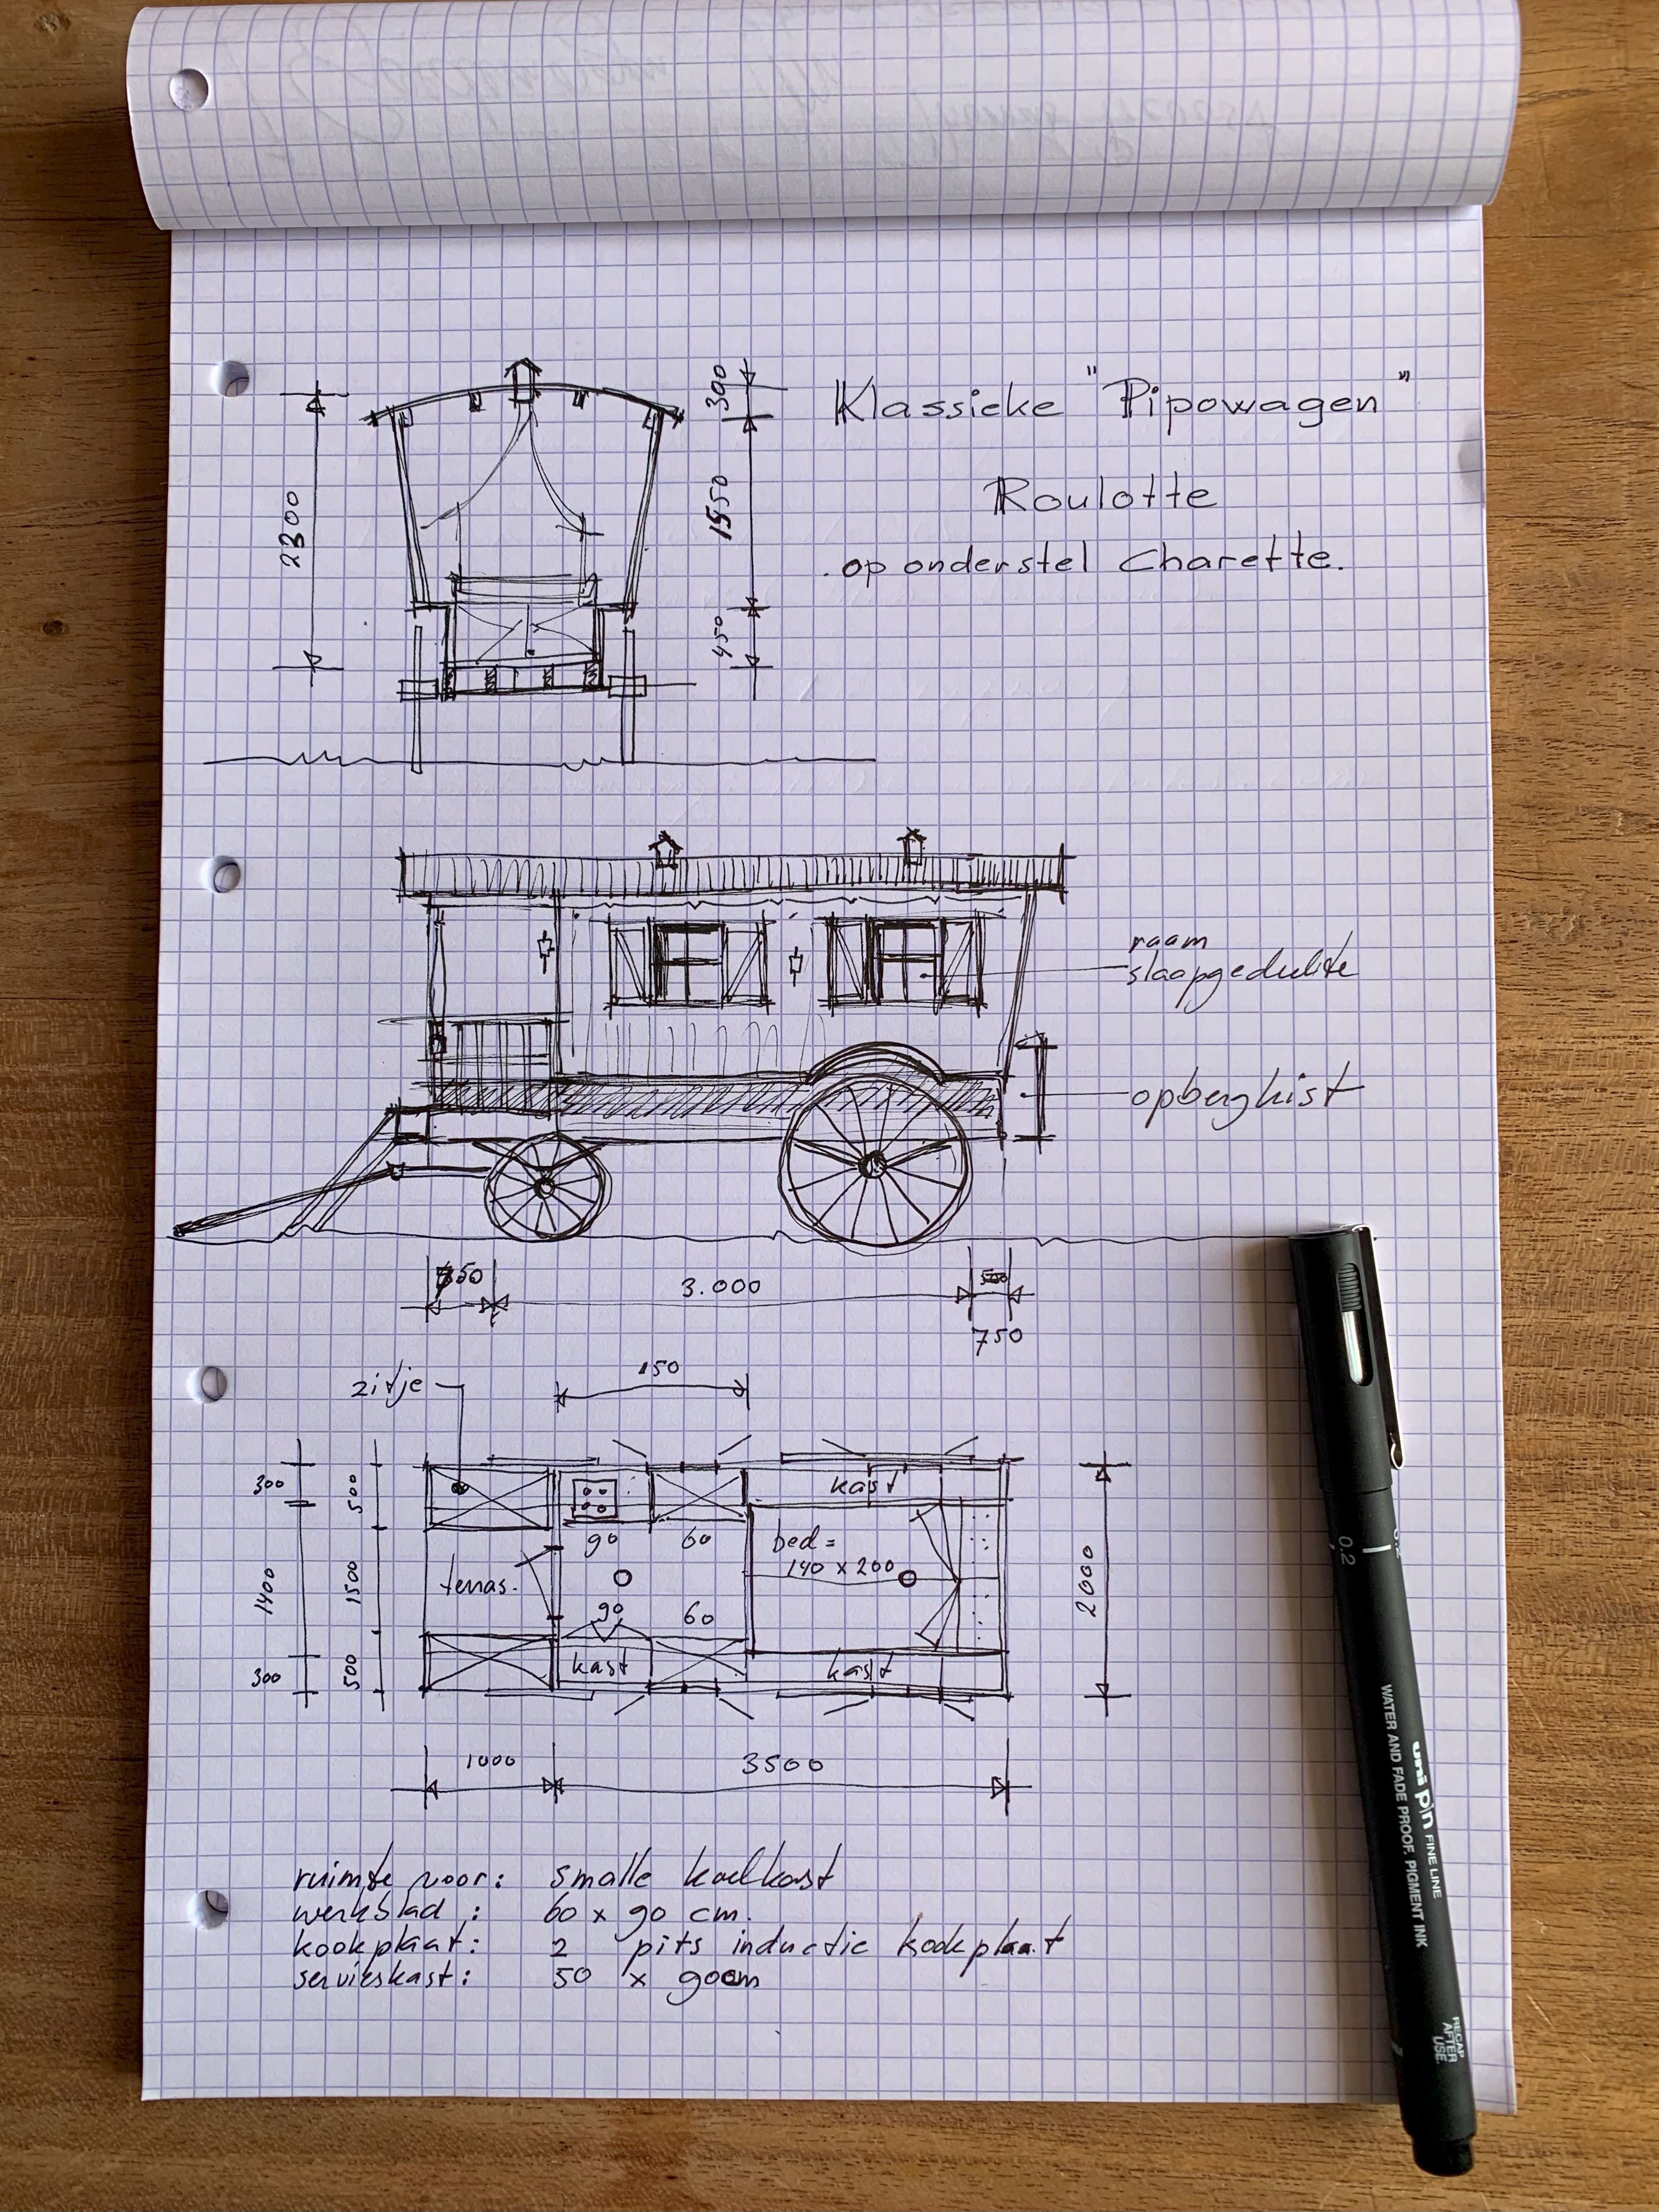 300
Klassieke "Pipowagen"
2300
1550
Roulotte
op onderstel Charette.
450
raam
slaapgedeelte
opbergkist
750
3.000
750
zitje
150
300
500
kast
90
60
bed =
140 x 200
terras.
1400
1500
2000
90
60
300
500
kast
kast
1000
3500
ruimte voor: smalle koelkast
werkblad : 60 x 90 cm.
kookplaat: 2 pits inductie kookplaat
servieskast: 50 x 90cm
0.2
uni pin FINE LINE
WATER AND FADE PROOF, PIGMENT INK
RECAP
AFTER
USE.